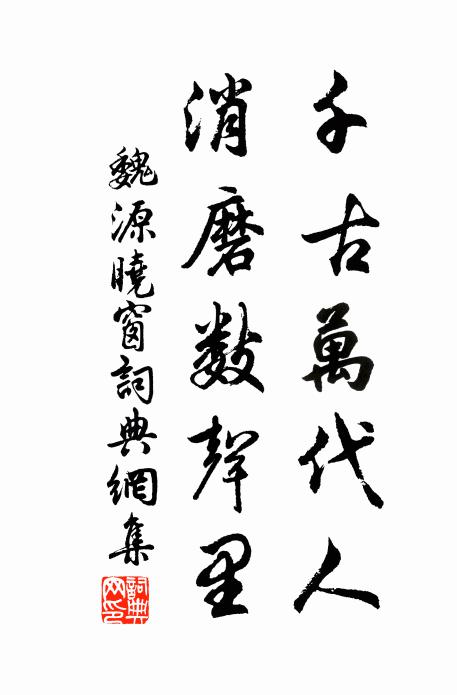 千古萬代人
消磨數聲里
魏源曉窗詞典網集
詞典網印